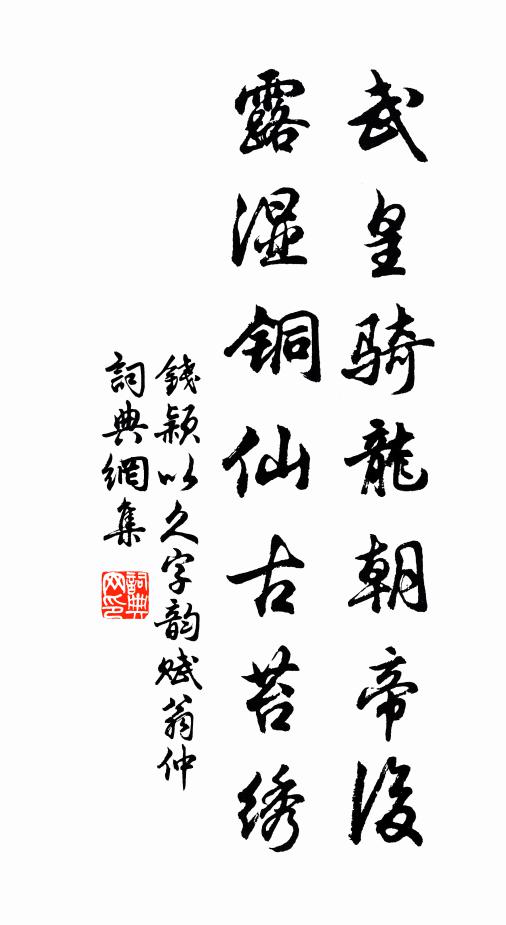 武皇骑龍朝帝後
露湿铜仙古苔绣
錢颖以久字韵赋翁仲
詞典網集
詞典网印